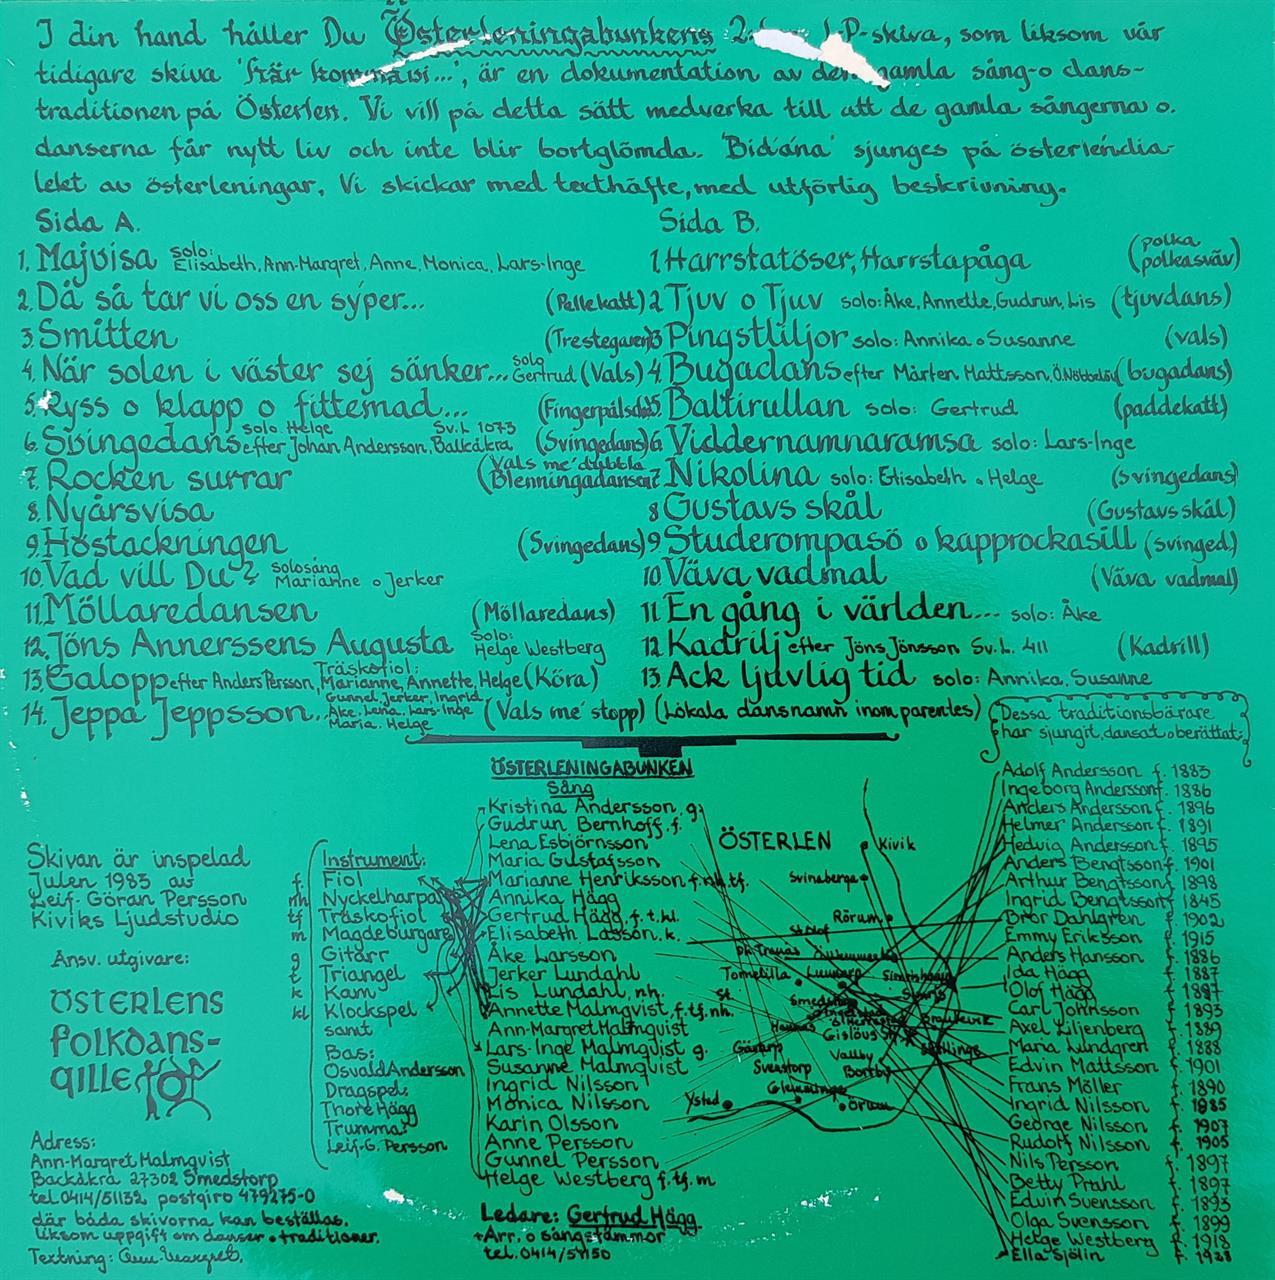 I din hand håller Du Österleningabunkens P-skiva, som liksom vår
tidigare skiva 'Här komma vi...', är en dokumentation av den gamla sång-o dans-
traditionen på Österlen. Vi vill på detta sätt medverka till att de gamla sångerna o.
danserna får nytt liv och inte blir bortglömda. 'Bidåna' sjunges på österlendia-
lekt av österleningar. Vi skickar med texthäfte, med utförlig beskrivning.
Sida A.
1. Majvisa solo: Elisabeth, Ann-Margret, Anne, Monica, Lars-Inge
2. Då så tar vi oss en syper... (Pellekatt)
3. Smitten (Trestegaren)
4. När solen i väster sej sänker... solo Gertrud (Vals)
5. Ryss o klapp o fittemad...
6. Svingedans efter Johan Andersson, Balkåkra solo Helge Sv.L 1073 (Svingedans)
7. Rocken surrar (Vals me' dubbla Blenningadansen)
8. Nyårsvisa
9. Höstackningen (Svingedans)
10. Vad vill Du? Solosång Marianne o Jerker
11. Möllaredansen (Möllaredans)
12. Jöns Annerssens Augusta Solo: Helge Westberg
13. Galopp efter Anders Persson, Träskofiol: Marianne, Annette, Helge (Köra)
14. Jeppa Jeppsson... Gunnel, Jerker, Ingrid, Åke, Lena, Lars-Inge Maria, Helge (Vals me' stopp)
Sida B.
1. Harrstatöser, Harrstapåga (polka polkasväv)
2 Tjuv o Tjuv solo: Åke, Annette, Gudrun, Lis (tjuvdans)
3 Pingstliljor solo: Annika o Susanne (vals)
4. Bugadans efter Mårten Mattsson, Ö.Nöbbelöv (bugadans)
5. Baltirullan solo: Gertrud (paddekatt)
6 Viddernamnaramsa solo: Lars-Inge
7 Nikolina solo: Elisabeth o Helge (svingedans)
8 Gustavs skål (Gustavs skål)
9 Studerompasö o kapprockasill (svinged.)
10 Väva vadmal (Väva vadmal)
11 En gång i världen... solo: Åke
12 Kadrilj efter Jöns Jönsson Sv.L. 411 (Kadrill)
13 Ack ljuvlig tid solo: Annika, Susanne
(Lokala dansnamn inom parentes)
Skivan är inspelad
Julen 1983 av
Leif-Göran Persson
Kiviks Ljudstudio
Ansv. utgivare:
ÖSTERLENS
folkdans-
gille
Adress:
Ann-Margret Malmqvist
Backåkra 27302 Smedstorp
tel. 0414/51132, postgiro 479275-0
där båda skivorna kan beställas,
liksom uppgift om danser o traditioner.
Textning: Ann-Margret.
Instrument:
f. Fiol
nh Nyckelharpa
tf Träskofiol
m Magdeburgare
g Gitarr
t Triangel
k Kam
kl Klockspel
samt
Bas:
Osvald Andersson
Dragspel:
Thore Hägg
Trummor
Leif-G. Persson
ÖSTERLENINGABUNKEN
Sång
Kristina Andersson, g.
Gudrun Bernhoff, f.
Lena Esbjörnsson
Maria Gustafsson
Marianne Henriksson f.nh.tf.
Annika Hägg
Gertrud Hägg, f.t.kl.
Elisabeth Larsson, k.
Åke Larsson
Jerker Lundahl
Lis Lundahl, nh.
Annette Malmqvist, f.tf.nh.
Ann-Margret Malmquist
Lars-Inge Malmqvist g.
Susanne Malmqvist
Ingrid Nilsson
Monica Nilsson
Karin Olsson
Anne Persson
Gunnel Persson
Helge Westberg f.tf.m
Ledare: Gertrud Hägg
+Arr. o sångstämmor
tel. 0414/51150
ÖSTERLEN
Kivik
Svinaberga
Rörum
St. Olof
Tomelilla
Lunnarp
Simrishamn
Smedstorp
Hannas
Gislöv
Brantevik
Skillinge
Gärarp
Vallby
Svenstorp
Borrby
Glemminge
Ystad
Örum
Dessa traditionsbärare
har sjungit, dansat o berättat:
Adolf Andersson f. 1883
Ingeborg Andersson f. 1886
Anders Andersson f. 1896
Helmer Andersson f. 1891
Hedvig Andersson f. 1895
Anders Bengtsson f. 1901
Arthur Bengtsson f. 1898
Ingrid Bengtsson f. 1845
Bror Dahlgren f. 1902
Emmy Eriksson f. 1915
Anders Hansson f. 1886
Ida Hägg f. 1887
Olof Hägg f. 1887
Carl Johnsson f. 1893
Axel Liljenberg f. 1889
Maria Lundgren f. 1888
Edvin Mattsson f. 1901
Frans Möller f. 1890
Ingrid Nilsson f. 1885
George Nilsson f. 1907
Rudolf Nilsson f. 1905
Nils Persson f. 1897
Betty Prahl f. 1897
Edvin Svensson f. 1893
Olga Svensson f. 1899
Helge Westberg f. 1918
Ella Sjölin f. 1928